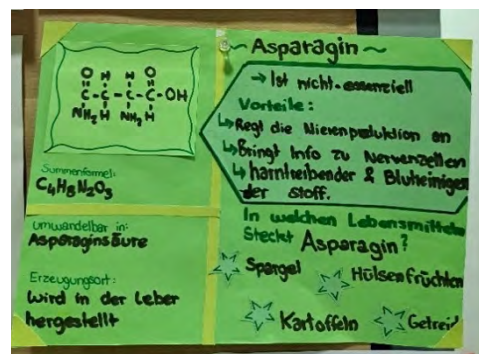 ~Asparagin~
O H H O
C-C-C-C-OH
NH₂ H NH₂ H
Summenformel:
C₄H₈N₂O₃
umwandelbar in:
Asparaginsäure
Erzeugungsort:
wird in der Leber
hergestellt
→ Ist nicht-essenziell
Vorteile:
↳Regt die Nierenproduktion an
↳Bringt Info zu Nervenzellen
↳harntreibender & Blutreinigen
der Stoff.
In welchen Lebensmitteln
steckt Asparagin?
Spargel
Hülsenfrüchten
Kartoffeln
Getreid